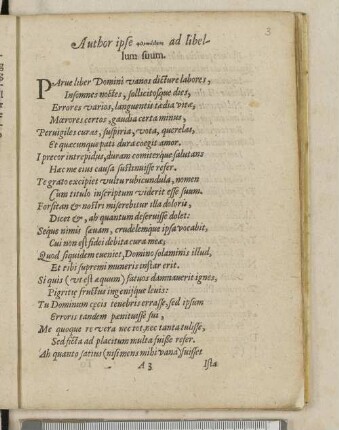 3
Author ipse ad libel-
lum suum.
PArue liber Domini vanos dicture labores,
Insomnes noctes, sollicitosque dies,
Errores varios, languentis tædia vitæ,
Mærores certos, gaudia certa minus,
Peruigiles curas, suspiria, vota, querelas,
Et quæcunque pati dura coegit amor.
I precor intrepidus, duram comiterque salutans
Hæc me eius causa sustinuisse refer.
Te grato excipiet vultu rubicundula, nomen
Cum titulo inscriptum viderit esse suum.
Forsitan & nostri miserebitur illa doloris,
Dicet &, ah quantum deseruisse dolet:
Seque nimis sæuam, crudelemque ipsa vocabit,
Cui non est fidei debita cura meæ;
Quod siquidem eueniet, Domino solaminis illud,
Et tibi supremi muneris instar erit.
Si quis (vt est æquum) fatuos damnauerit ignes,
Pigritiæ fructus ingenijque leuis:
Tu Dominum cæcis tenebris errasse, sed ipsum
Erroris tandem pænituisse sui,
Me quoque re vera nec tot, nec tanta tulisse,
Sed ficta ad placitum multa fuisse refer.
Ah quanto satius (nisi mens mihi vana) fuisset
A3
Ista